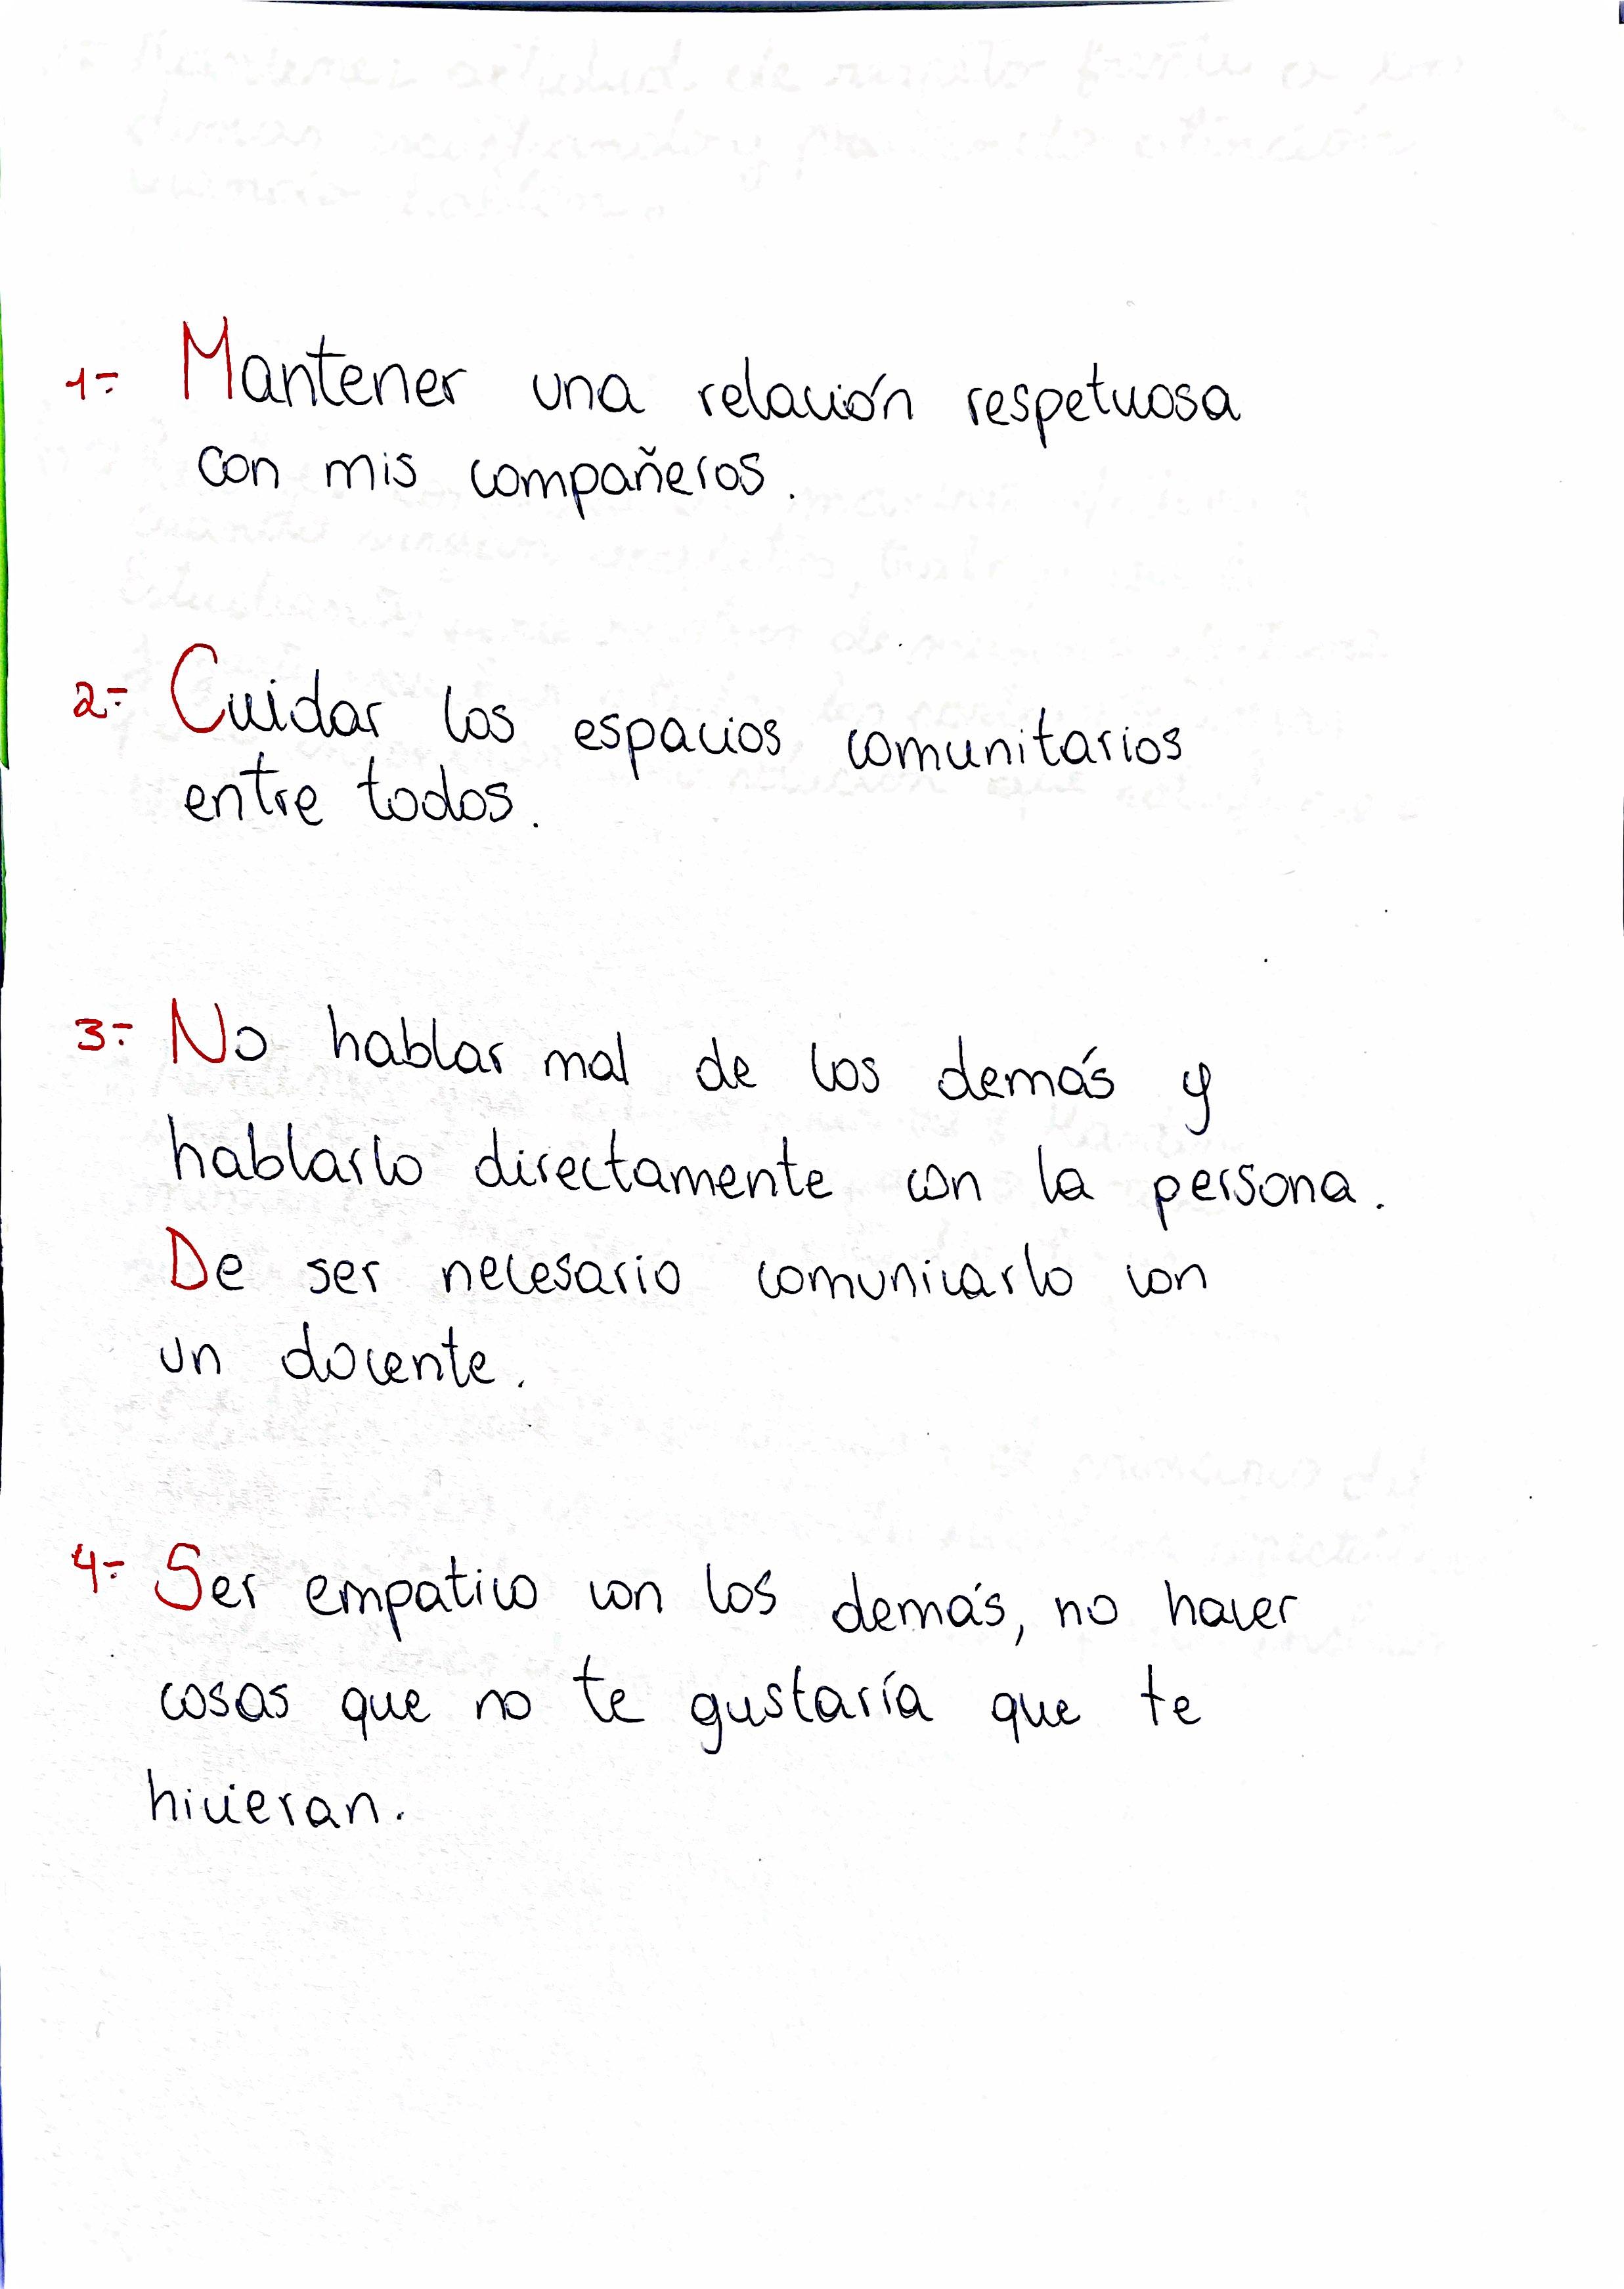 1.- Mantener una relación respetuosa
con mis compañeros.
2.- Cuidar los espacios comunitarios
entre todos.
3.- No hablar mal de los demás y
hablarlo directamente con la persona.
De ser necesario comunicarlo con
un docente.
4.- Ser empatico con los demás, no hacer
cosas que no te gustaría que te
hicieran.